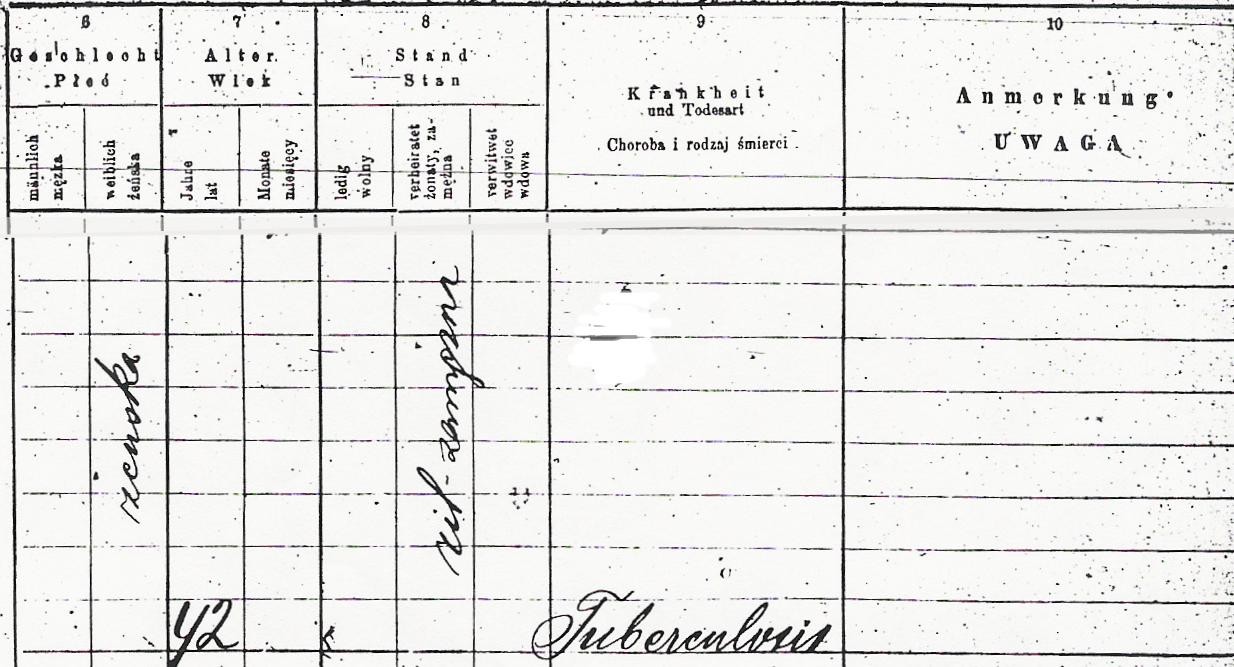 6
7
8
9
10
Geschlecht
Płeć
Alter.
Wiek
Stand
Stan
Krankheit
und Todesart
Choroba i rodzaj śmierci
Anmerkung
UWAGA
männlich
męzka
weiblich
żeńska
Jahre
lat
Monate
miesięcy
ledig
wolny
verheiratet
żonaty, za-
mężna
verwitwet
wdowiec
wdowa
żenska
42
Tuberculosis